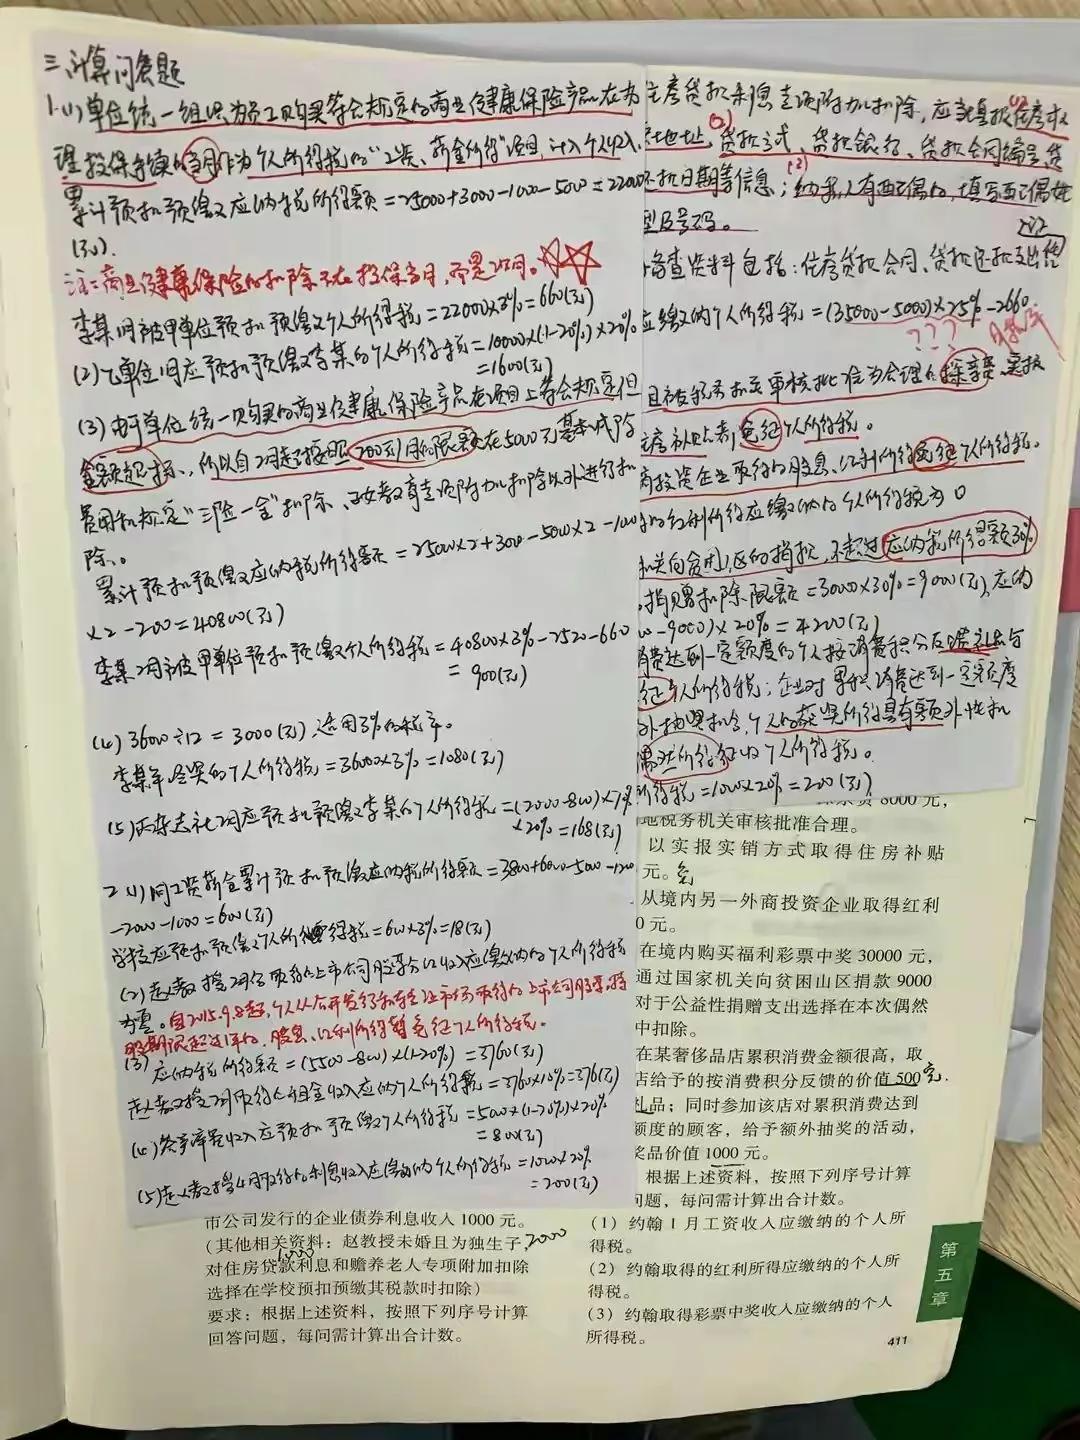 三、计算问答题
1.(1)单位统一组织为员工购买符合规定的商业健康保险产品在办
理投保手续的当月作为个人所得税的“工资、薪金所得”项目,计入个人收入,
累计预扣预缴应纳税所得额=25000+3000-1000-5000=22000
(元).
注:商业健康保险的扣除不在投保当月,而是次月。
李某1月被甲单位预扣预缴个人所得税=22000×3%=660(元)
(2)乙单位1月应预扣预缴李某的个人所得税=10000×(1-20%)×20%
=1600(元)
(3)由于单位统一购买的商业健康保险产品在项目上符合规定但
金额超标,所以自2月起按照200元/月的限额在5000元基本减除
费用和规定“三险一金”扣除、子女教育专项附加扣除以外进行扣
除。
累计预扣预缴应纳税所得额=25000×2+3000-5000×2-1000
×2-200=40800(元)
李某2月被甲单位预扣预缴个人所得税=40800×3%-2520-660
=900(元)
(4)36000÷12=3000(元),适用3%的税率。
李某年终奖的个人所得税=36000×3%=1080(元)
(5)丙杂志社2月应预扣预缴李某的个人所得税=(2000-800)×70%
×20%=168(元)
2.(1)同工资薪金累计预扣预缴应纳税所得额=3800+6000-5000-1200
-2000-1000=600(元)
学校应预扣预缴个人所得税=600×3%=18(元)
(2)赵教授2月份取得的上市公司股票分红收入应缴纳的个人所得税
为零。自2015.9.8起,个人从公开发行和转让市场取得的上市公司股票,持
股期限超过1年的,股息、红利所得暂免征个人所得税。
(3)应纳税所得额=(5500-800)×(1-20%)=3760(元)
赵教授2月取得的租金收入应纳个人所得税=3760×10%=376(元)
(4)答辩率署收入应预扣预缴个人所得税=5000×(1-20%)×20%
=800(元)
(5)赵教授4月取得的利息收入应缴纳的个人所得税=1000×20%
=200(元)
市公司发行的企业债券利息收入 1000 元。
(其他相关资料:赵教授未婚且为独生子, 2000
1000
对住房贷款利息和赡养老人专项附加扣除
选择在学校预扣预缴其税款时扣除)
要求:根据上述资料,按照下列序号计算
回答问题,每问需计算出合计数。
住房贷款利息专项附加扣除,应当填报住房权
地址,贷款方式、贷款银行、贷款合同编号,贷
还款日期等信息;纳税人有配偶的,填写配偶姓
型及号码。
备查资料包括:住房贷款合同、贷款还款支出凭
应缴纳的个人所得税=(35000-5000)×25%-2660.
???
且被税务机关审核批准为合理的探亲费,实报
住房补贴,免征个人所得税。
商投资企业取得的股息、红利所得免征个人所得税。
的红利所得应缴纳的个人所得税为0
机关向贫困山区的捐款,不超过应纳税所得额30%
.捐赠扣除限额=30000×30%=9000(元),应纳
-9000)×20%=4200(元)
消费达到一定额度的个人按消费积分反馈礼品与
征个人所得税;企业对累积消费达到一定额度
外抽奖机会,个人的获奖所得具有额外性和
偶然所得征收个人所得税。
所得税=1000×20%=200(元)
探亲费 8000 元,
地税务机关审核批准合理。
以实报实销方式取得住房补贴
元。免
从境内另一外商投资企业取得红利
0 元。
在境内购买福利彩票中奖 30000 元,
通过国家机关向贫困山区捐款 9000
对于公益性捐赠支出选择在本次偶然
中扣除。
在某奢侈品店累积消费金额很高,取
店给予的按消费积分反馈的价值 500 元
礼品;同时参加该店对累积消费达到
额度的顾客,给予额外抽奖的活动,
奖品价值 1000 元。
根据上述资料,按照下列序号计算
问题,每问需计算出合计数。
(1)约翰 1 月工资收入应缴纳的个人所
得税。
(2)约翰取得的红利所得应缴纳的个人所
得税。
(3)约翰取得彩票中奖收入应缴纳的个人
所得税。
第五章
411